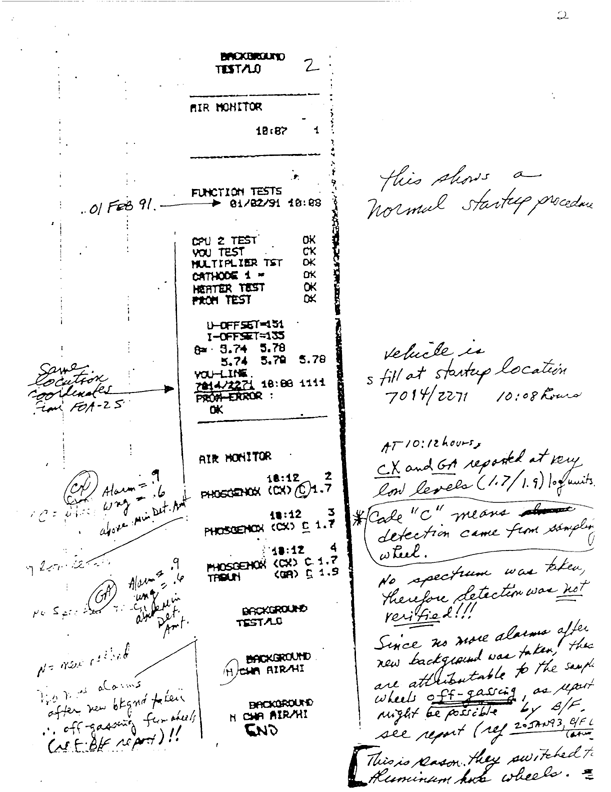 2
BACKGROUND
TEST/LO
2
AIR MONITOR
10:07 1
FUNCTION TESTS
01 FEB 91.
01/02/91 10:08
CPU 2 TEST OK
VOU TEST OK
MULTIPLIER TST OK
CATHODE 1 = OK
HEATER TEST OK
PROM TEST OK
U-OFFSET=131
I-OFFSET=135
8= 5.74 5.78
5.74 5.79 5.78
VOU-LINE
7014/2271 10:08 1111
PROM-ERROR :
OK
AIR MONITOR
10:12 2
PHOSGENOX (CX) C 1.7
10:12 3
PHOSGENOX (CX) C 1.7
10:12 4
PHOSGENOX (CX) C 1.7
TABUN (GA) C 1.9
BACKGROUND
TEST/LO
BACKGROUND
H CWA AIR/HI
BACKGROUND
H CWA AIR/HI
END
Same
location
coordinates
from FOA-25
CX
Alarm = .9
wng = .6
above Min. Det. Amt
GA
Alarm = .9
wng = .6
above min
Det.
Amt.
No new alarms
after new bkgnd taken
∴ off-gassing from wheels
(ref: B/F report)!!
this shows a
normal startup procedure
vehicle is
still at startup location
7014/2271 10:08 hours
AT 10:12 hours,
CX and GA reported at very
low levels (1.7/1.9) log units.
* Code "C" means
detection came from sampling
wheel.
No spectrum was taken,
therefore detection was not
verified!!!
Since no more alarms after
new background was taken, these
are attributable to the sample
wheels off-gassing, as report
might be possible by B/F.
see report (ref
This is reason they switched to
Aluminum hub wheels.